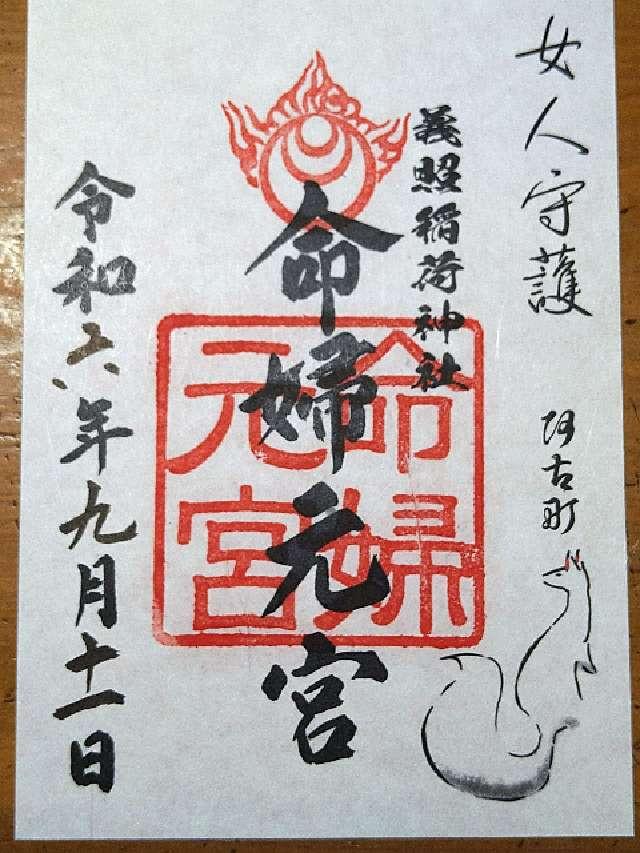 女人守護
阿古町
義照稲荷神社
命婦元宮
命婦元宮
令和六年九月十一日